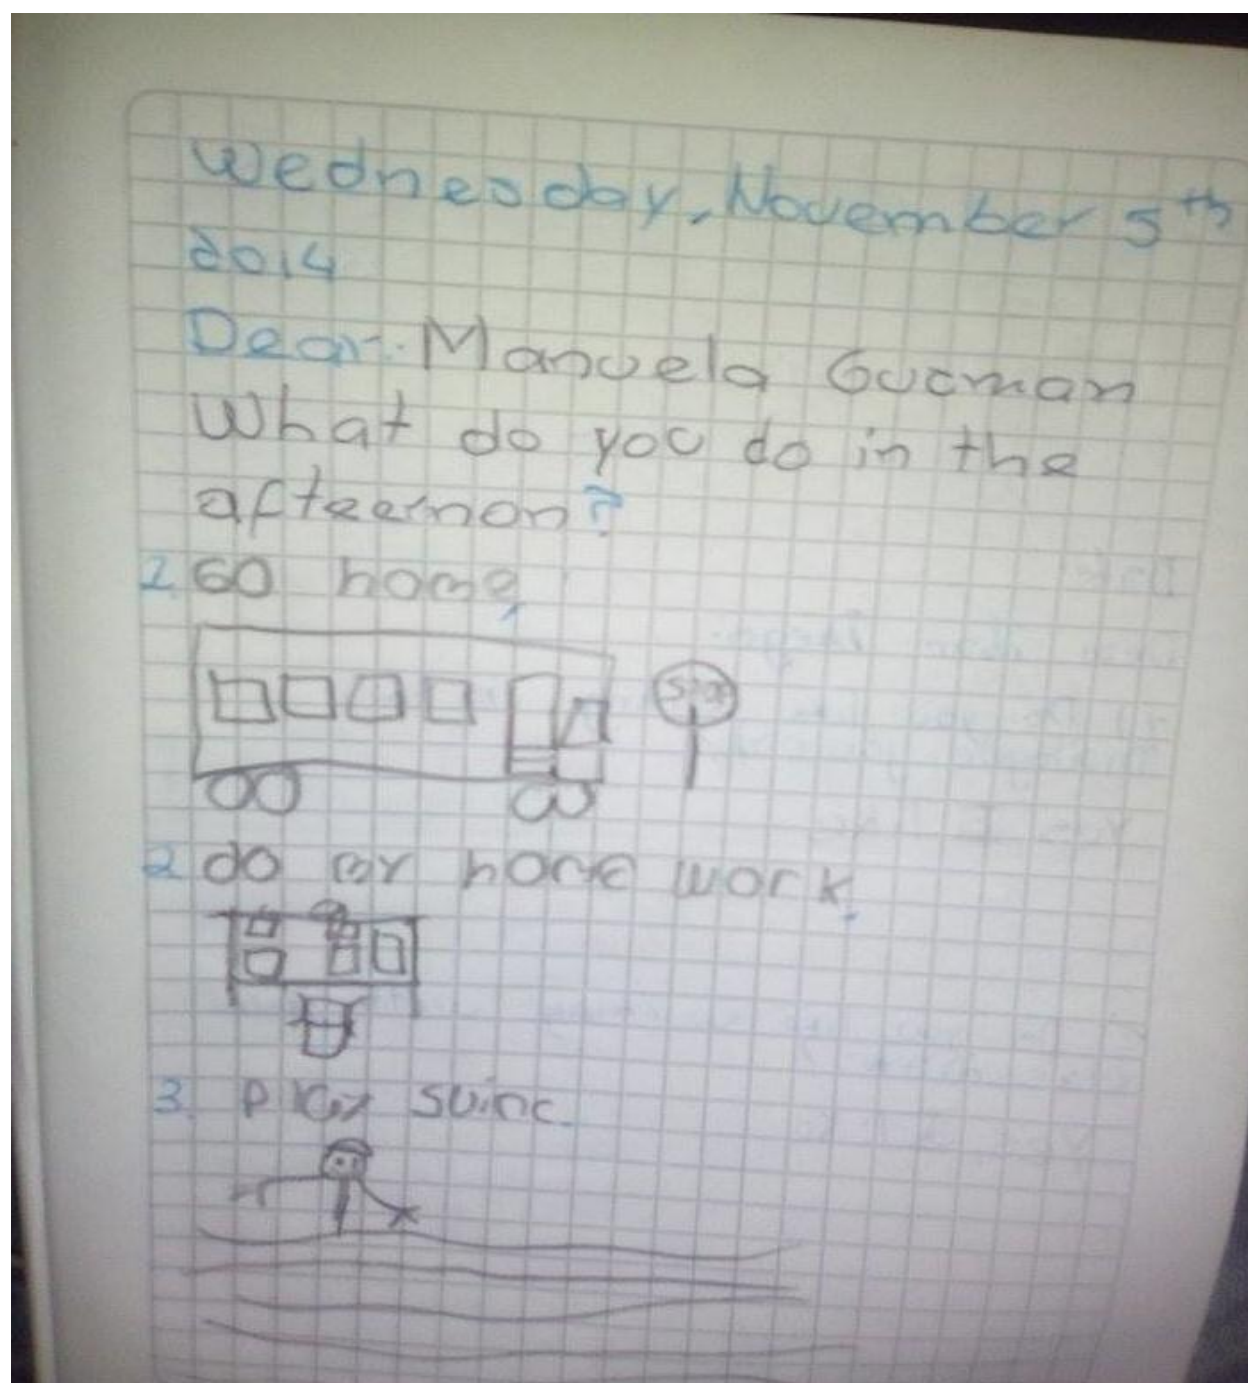 Wednesday, November 5th
2014
Dear: Manuela Gucman
What do you do in the
afteernon?
1. GO home,
STOP
2 do my home work.
3. Play suinc.